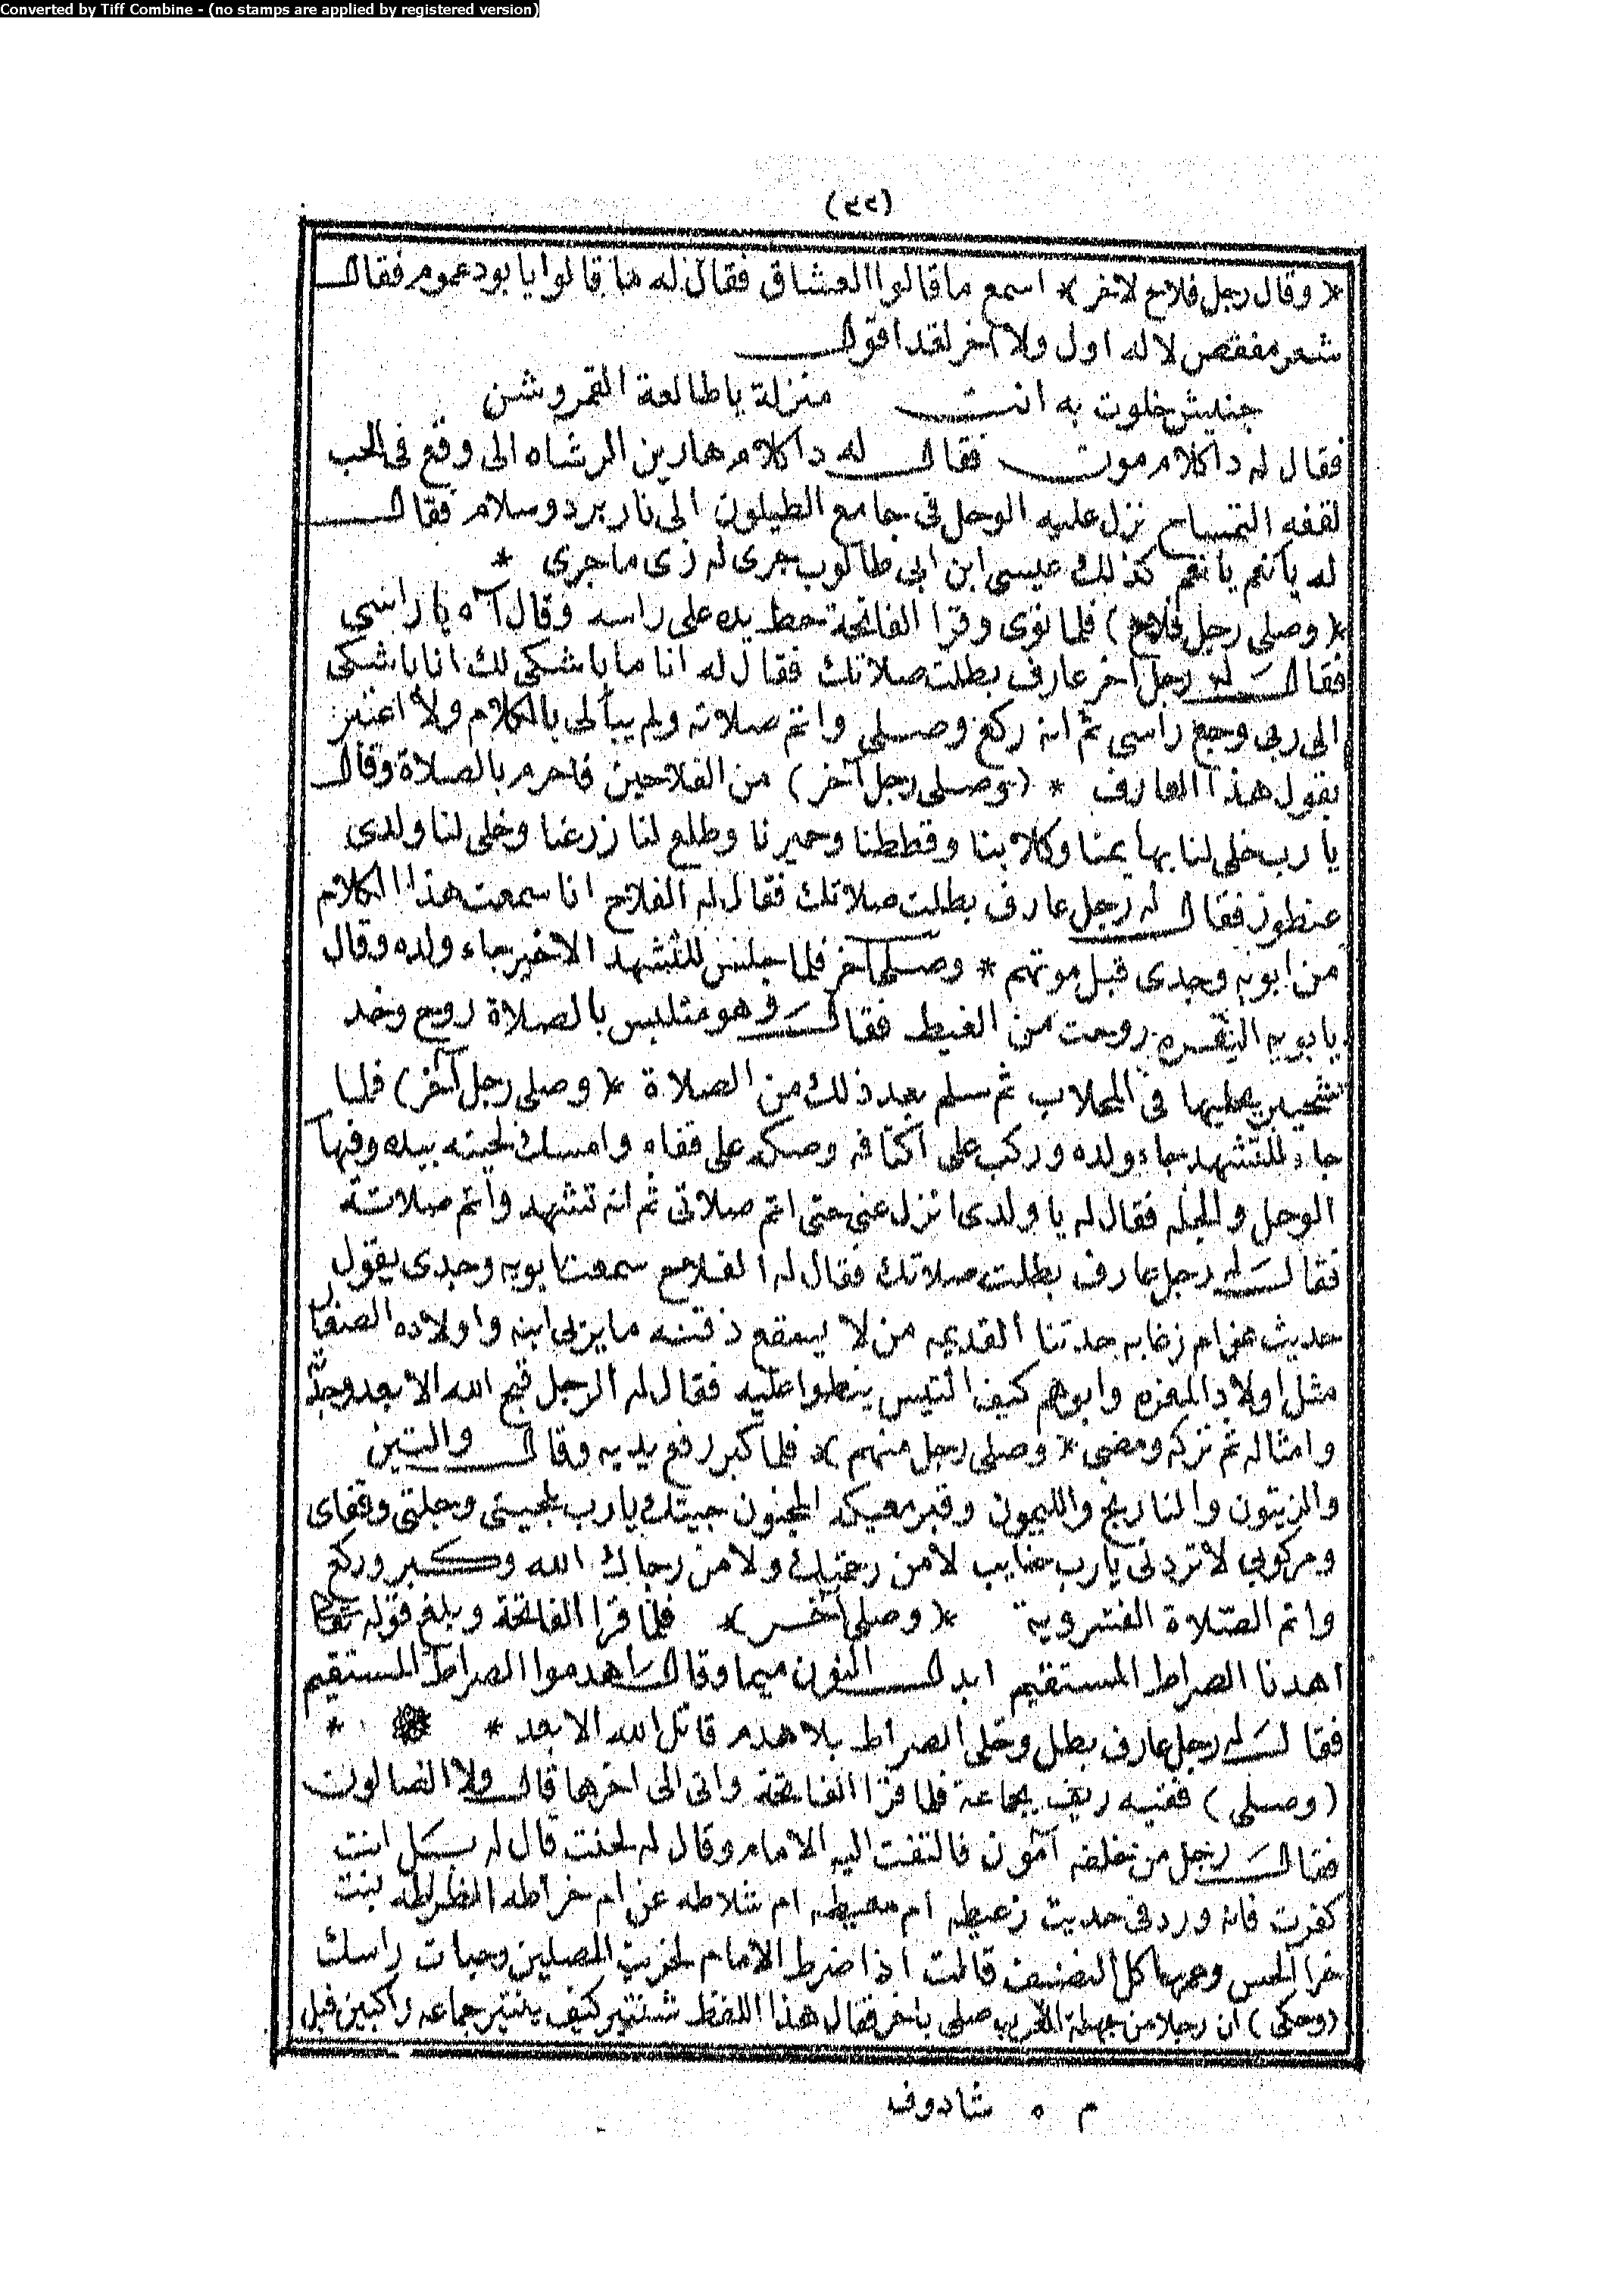 Converted by Tiff Combine - (no stamps are applied by registered version)
(٤٩)
* وقال رجل فلاح لاخر * اسمع ما قالوا العشاق فقال له ما قالوا يا بودعموم فقال
شعر مفقص لا له اول ولا آخر لقد اقول
جنليش خلوت به انت منزلة ياطالعة القمر وشن
فقال له دا كلام موت فقال له دا كلام هارين الرشاه الى وقع فى الحب
لقفه التمساح نزل عليه الوحل فى جامع الطيلون الى نار برد وسلام فقال
له يا نعم يا نعم كذلك عيسى ابن ابى طالوب جرى له زى ما جرى *
* (وصلى رجل فلاح) فلما نوى وقرا الفاتحة حط يده على راسه وقال آه يا راسى
فقال له رجل آخر عارف بطلت صلاتك فقال له انا ما باشكى لك انا باشكى
الى ربى وجع راسى ثم انه ركع وصلى واتم صلاته ولم يبالى بالكلام ولا اعتبر
بقول هذا العارف * (وصلى رجل آخر) من الفلاحين فاحرم بالصلاة وقال
يا رب خلى لنا بهايمنا وكلابنا وقططنا وحميرنا وطلع لنا زرعنا وخلى لنا ولدى
عنطوز فقال له رجل عارف بطلت صلاتك فقال له الفلاح انا سمعت هذا الكلام
من ابويه وجدى قبل موتهم * وصلى آخر فلما جلس للتشهد الاخير جاء ولده وقال
يا بويه البقره روحت من الغيط فقال وهو متلبس بالصلاة روح وخد
يحليها فى المحلاب ثم سلم بعد ذلك من الصلاة * (وصلى رجل آخر) فلما
جاء للتشهد جاء ولده وركب على اكتافه وصكه على قفاه وامسك لحيته بيده وفيها
الوحل والجله فقال له يا ولدى انزل عنى حتى اتم صلاتى ثم انه تشهد واتم صلاته
فقال له رجل عارف بطلت صلاتك فقال له الفلاح سمعت ابويه وجدى يقول
حديث عن ام زغابه جدتنا القديمه من لا يسقع ذقنه ما يربى ابنه واولاده الصغار
مثل اولاد المعزه وابوهم كيف التيس ينطوا عليه فقال له الرجل قبح الله الابعد وجده
وامثاله ثم تركه ومضى * (وصلى رجل منهم) * فلما كبر رفع يديه وقال والتين
والزيتون والنارنج والليمون وقبر معيكه المجنون جيتك يا رب بلحيتى وجلتى وقفاى
ومركوبى لا تردنى يا رب خايب لا من رحمتك ولا من رجاك الله وكبر وركع
واتم الصلاة الفشروية * (وصلى آخر) * فلما قرا الفاتحة وبلغ قوله تعالى
اهدنا الصراط المستقيم ابدل النون ميما وقال اهدموا الصراط المستقيم
فقال له رجل عارف بطل وخلى الصراط بلا هدم قاتل الله الابعد * *
(وصلى) فقيه ريف بجماعة فلما قرا الفاتحة واتى الى اخرها قال ولا الضالون
فقال رجل من خلفه آمون فالتفت اليه الامام وقال له لحنت قال له بل انت
كفرت فانه ورد فى حديث زعيط ام معيط ام شلاطه عن ام خراطه الظرلطه بنت
خرا الحس وعمها كل النضيف قالت اذا ضرط الامام لخريت المصلين وحيات راسك
(وحكى) ان رجلا من جهلة المغرب صلى باخر فقال هذا اللفظ شنتير كيف ينتير جماعه راكبين قبل
م ٥ شادوف